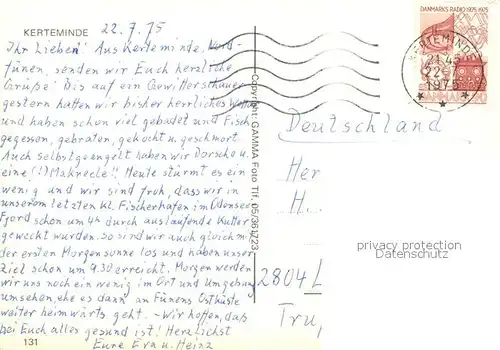 KERTEMINDE
22.7.75
Ihr Lieben! Aus Kerteminde, Nord-
fünen, senden wir Euch herzliche
Grüße! Bis auf ein Gewitterschauer
gestern hatten wir bisher herrliches Wetter
und haben schon viel gebadet und Fisch
gegessen, gebraten, gekocht u. geschmort
Auch selbstgeangelt haben wir Dorsche u.
eine (!) Makrele!! Heute stürmt es ein
wenig und wir sind froh, dass wir in
unserem letzten kl. Fischerhafen im Odense
Fjord schon um 4h durch auslaufende Kutter
geweckt wurden. So sind wir auch gleich mit
der ersten Morgensonne los und haben unser
Ziel schon um 9.30 erreicht. Morgen werden
wir uns noch ein wenig im Ort und Umgebung
umsehen, ehe es dann an Fünens Ostküste
weiter heimwärts geht. - Wir hoffen, daß
bei Euch alles gesund ist! Herzlichst
Eure Eva u. Heinz
131
Copyright: GAMMA Foto Tlf. (05)361723
DANMARKS RADIO 1925-1975
KERTEMINDE
22-7
1975
Deutschland
Her
H.
2804 L
Tru,
privacy protection
Datenschutz